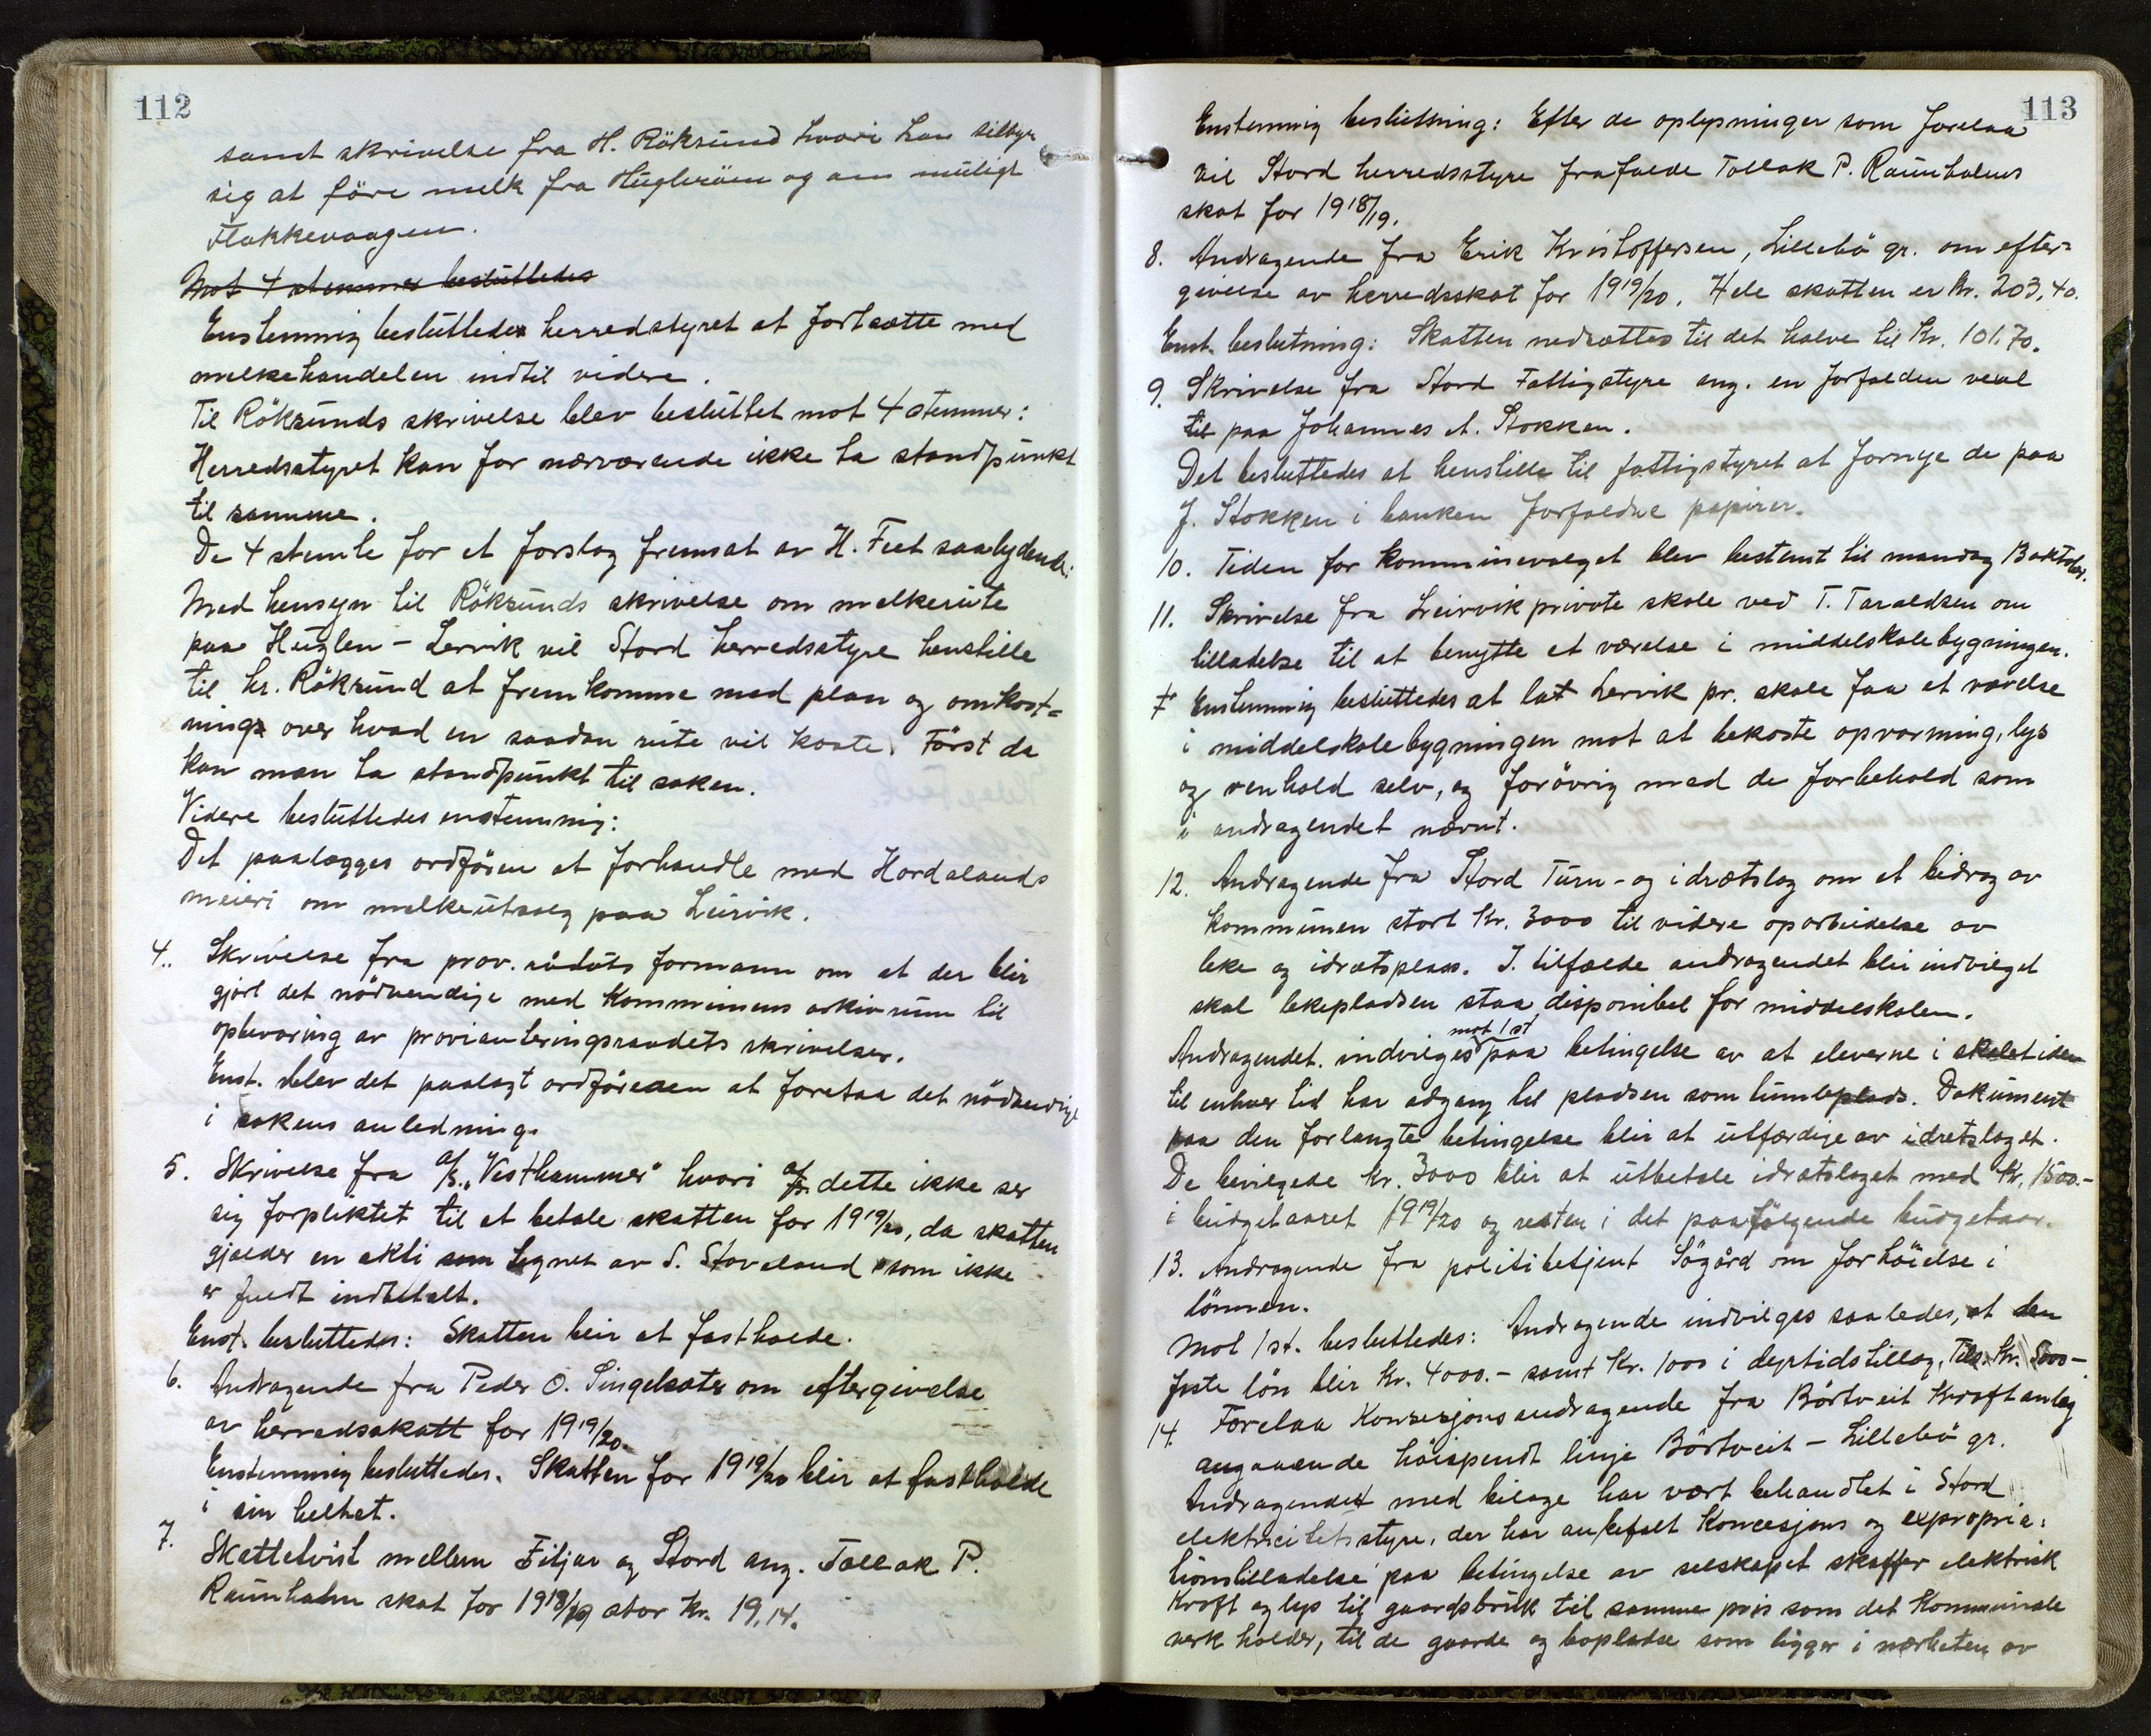 112
samt skrivelse fra H. Röksund hvori han tilbyr
sig at före melk fra Hugleröen og om muligt
Flakkevaagen.
Mot 4 stemmer besluttedes
Enstemmig besluttedes herredstyret at fortsætte med
melkehandelen indtil videre.
Til Röksunds skrivelse blev besluttet mot 4 stemmer:
Herredsstyret kan for nærværende ikke ta standpunkt
til samme.
De 4 stemte for et forslag fremsat av H. Feet saalydende:
Med hensyn til Röksunds skrivelse om melkeruta
paa Huglen - Lervik vil Stord herredsstyre henstille
til hr. Röksund at fremkomme med plan og omkost=
ning over hvad en saadan rute vil koste. Först da
kan man ta standpunkt til saken.
Videre besluttedes enstemmig:
Det paalægges ordfören at forhandle med Hordalands
meieri om melkeutsalg paa Leirvik.
4. Skrivelse fra prov. rådets formann om at der blir
gjort det nödvendige med Kommunens arkivrum til
opbevaring av provianteringsraadets skrivelser.
Enst. blev det paalagt ordföreren at foretaa det nödvendige
i sakens anledning.
5. Skrivelse fra A/S. "Vesthammer" hvori A/S. dette ikke ser
sig forpliktet til at betale skatten for 1919/20, da skatten
gjælder en akti som tegnet av S. Stoveland som ikke
er fuldt indbetalt.
Enst. besluttedes: Skatten blir at fastholde.
6. Andragende fra Peder O. Singelsater om eftergivelse
av herredsskatt for 1919/20.
Enstemmig besluttedes. Skatten for 1919/20 blir at fastholde
i sin helhet.
7. Skattetvist mellem Fitjar og Stord ang. Tollak P.
Raunholm skat for 1918/19 stor kr. 19,14.
113
Enstemmig beslutning: Efter de oplysninger som forelaa
vil Stord herredsstyre frafalde Tollak P. Raunholms
skat for 1918/19.
8. Andragende fra Erik Kristoffersen, Lillebö gr. om efter=
givelse av herredsskat for 1919/20. Hele skatten er kr. 203,40.
Enst. beslutning: Skatten nedsættes til det halve til Kr. 101.70.
9. Skrivelse fra Stord Fattigstyre ang. en forfalden vexl
til paa Johannes A. Stokken.
Det besluttedes at henstille til fattigstyret at fornye de paa
J. Stokken i banken forfaldne papirer.
10. Tiden for kommunevalget blev bestemt til mandag 13 oktober.
11. Skrivelse fra Leirvik private skole ved T. Taraldsen om
tilladelse til at benytte et værelse i middelskolebygningen.
Enstemmig besluttedes at lat Lervik pr. skole faa et værelse
i middelskolebygningen mot at bekoste opvarming, lys
og renhold selv, og forövrig med de forbehold som
i andragendet nævnt.
12. Andragende fra Stord Turn- og idrætslag om et bidrag av
kommunen stort Kr. 3000 til videre oparbeidelse av
leke og idrætsplass. I tilfælde andragendet blir indvilget
skal lekepladsen staa disponibel for middelskolen.
mot 1 st
Andragendet indvilges paa betingelse av at eleverne i skoletiden
til enhver tid har adgang til pladsen som tumleplads. Dokument
paa den forlangte betingelse blir at utfærdige av idretslaget.
De bevilgede kr. 3000 blir at utbetale idrætslaget med Kr. 1500.-
i budgetaaret 1919/20 og resten i det paafölgende budgetaar.
13. Andragende fra politibetjent Sögård om forhöielse i
lönnen.
Mot 1 st. besluttedes: Andragende indvilges saaledes, at den
faste lön blir Kr. 4000.- samt Kr. 1000 i dyrtidstillæg. Tils. Kr. 5000-
14. Forelaa Konsesjonsandragende fra Börtveit Kraftanleg
angaaende höispendt linje Börtveit - Lillebö gr.
Andragendet med bilage har vært behandlet i Stord
elektricitetsstyre, der har anbefalt Koncesjons og expropria=
tionstilladelse paa betingelse av selskapet skaffer elektrisk
kraft og lys til gaardsbruk til samme pris som det kommunale
verk holder, til de gaarde og bopladse som ligger i nærheten av